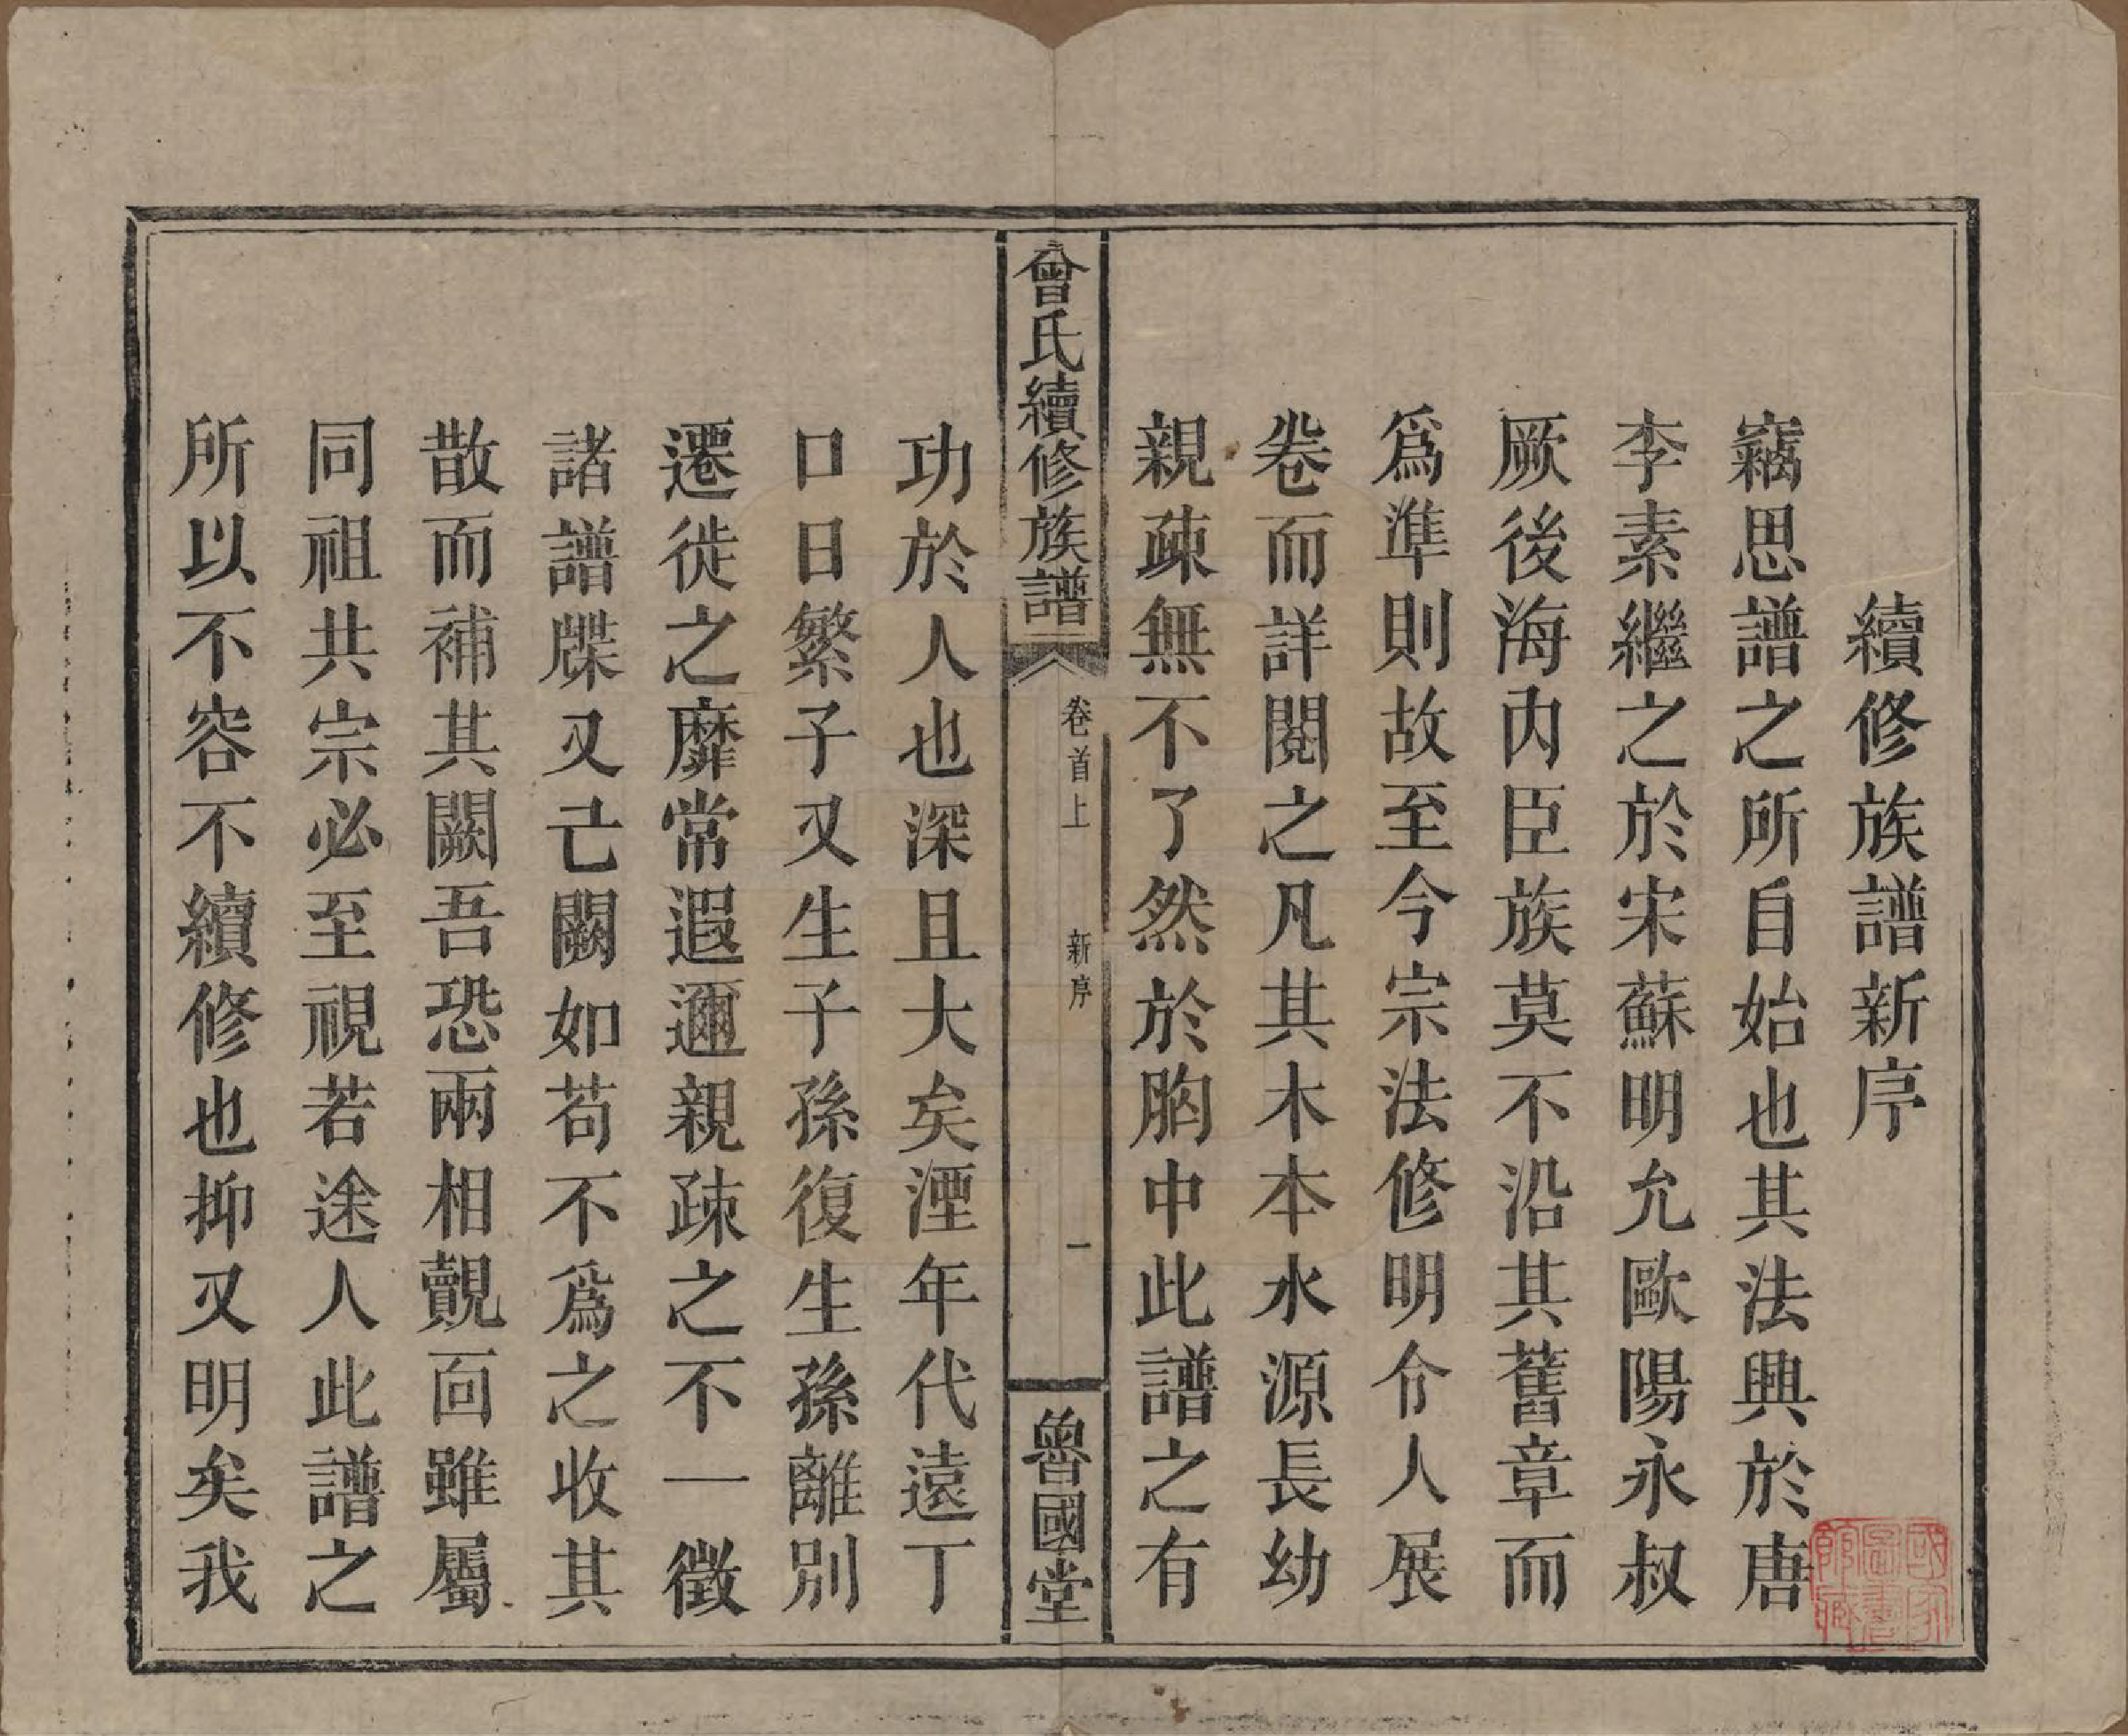 續修族譜新序
竊思譜之所自始也其法興於唐
李素繼之於宋蘇明允歐陽永叔
厥後海内臣族莫不沿其舊章而
爲準則故至今宗法修明令人展
卷而詳閱之凡其木本水源長幼
親疎無不了然於胸中此譜之有
曾氏續修族譜
卷首上
新序
一
魯國堂
功於人也深且大矣湮年代遠丁
口日繁子又生子孫復生孫離別
遷徙之靡常遐邇親疎之不一徵
諸譜牒又己闕如苟不爲之收其
散而補其闕吾恐兩相覿面雖屬
同祖共宗必至視若途人此譜之
所以不容不續修也抑又明矣我
國家圖書館藏